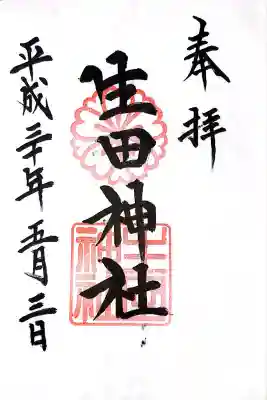 奉拝
生田神社
平成三十年正月三日
生田神社